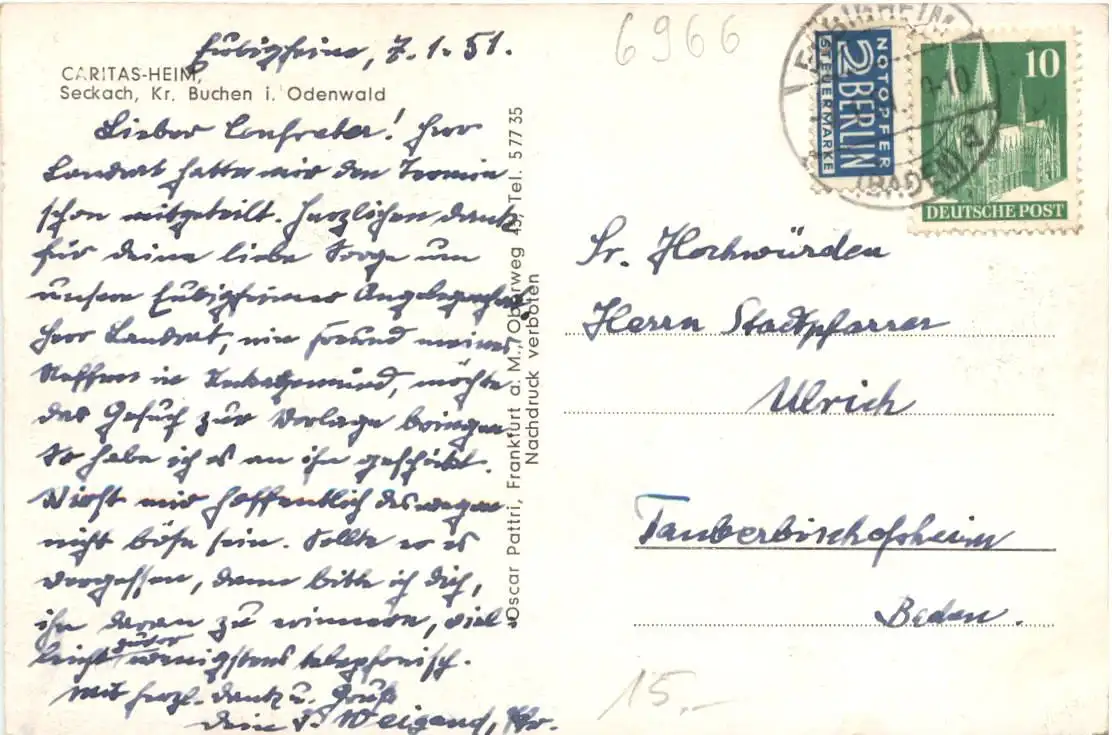 6966
Eubigheim, 7.1.51.
CARITAS-HEIM,
Seckach, Kr. Buchen i. Odenwald
Lieber Confrater! Herr
Landrat hatte mir den Termin
schon mitgeteilt. Herzlichen Dank
für deine liebe Sorge um
unsere Eubigheimer Angelegenheit
Herr Landrat, ein Freund meines
Neffen in Neckargemünd, möchte
das Gesuch zur Vorlage bringen
So habe ich es an ihn geschickt.
Wirst mir hoffentlich deswegen
nicht böse sein. Sollte er es
vergessen, dann bitte ich dich,
ihn daran zu erinnern, viel-
leicht wenigstens telephonisch.
Mit herzl. Dank u. Gruß
dein J. Weigand, Pfr.
Oscar Pattri, Frankfurt a. M., Oberweg 49, Tel. 57735
Nachdruck verboten
NOTOPFER
2 BERLIN
STEUERMARKE
10
DEUTSCHE POST
EUBIGHEIM
(BADEN) a
Sr. Hochwürden
Herrn Stadtpfarrer
Ulrich
Tauberbischofsheim
Baden.
15,-